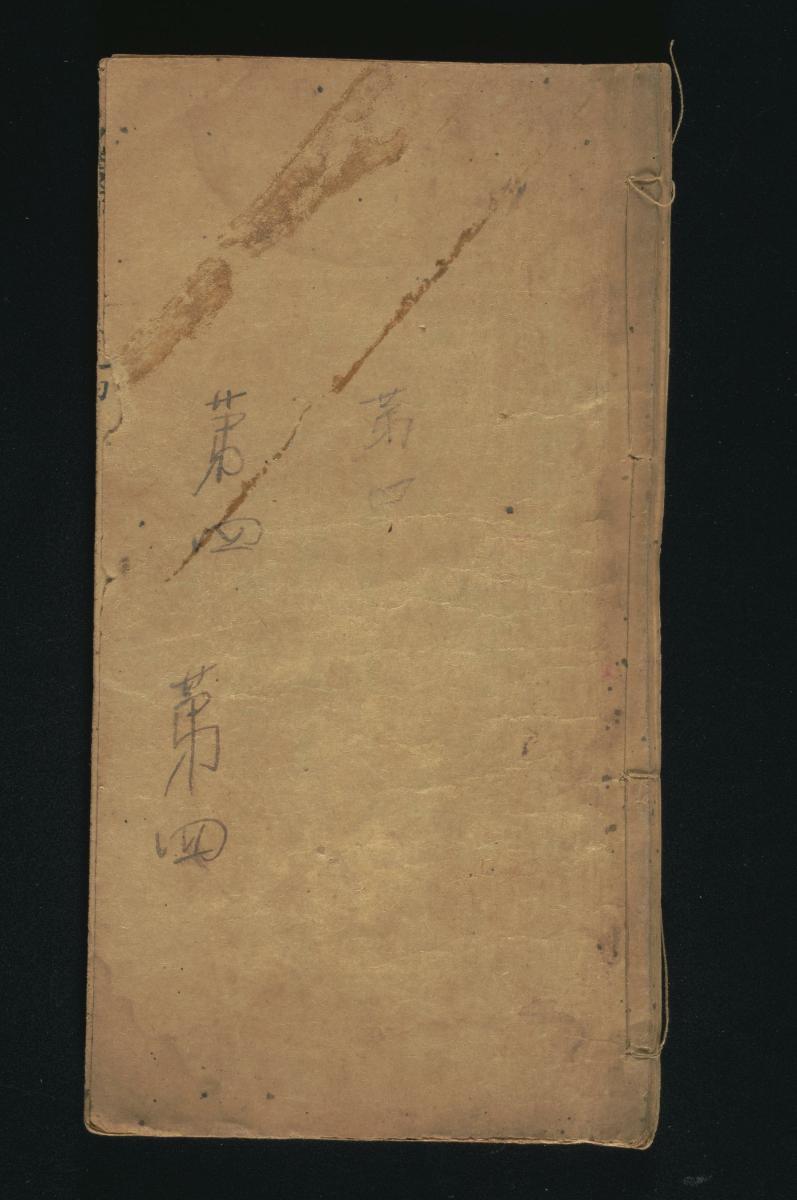 第四
第四
第四